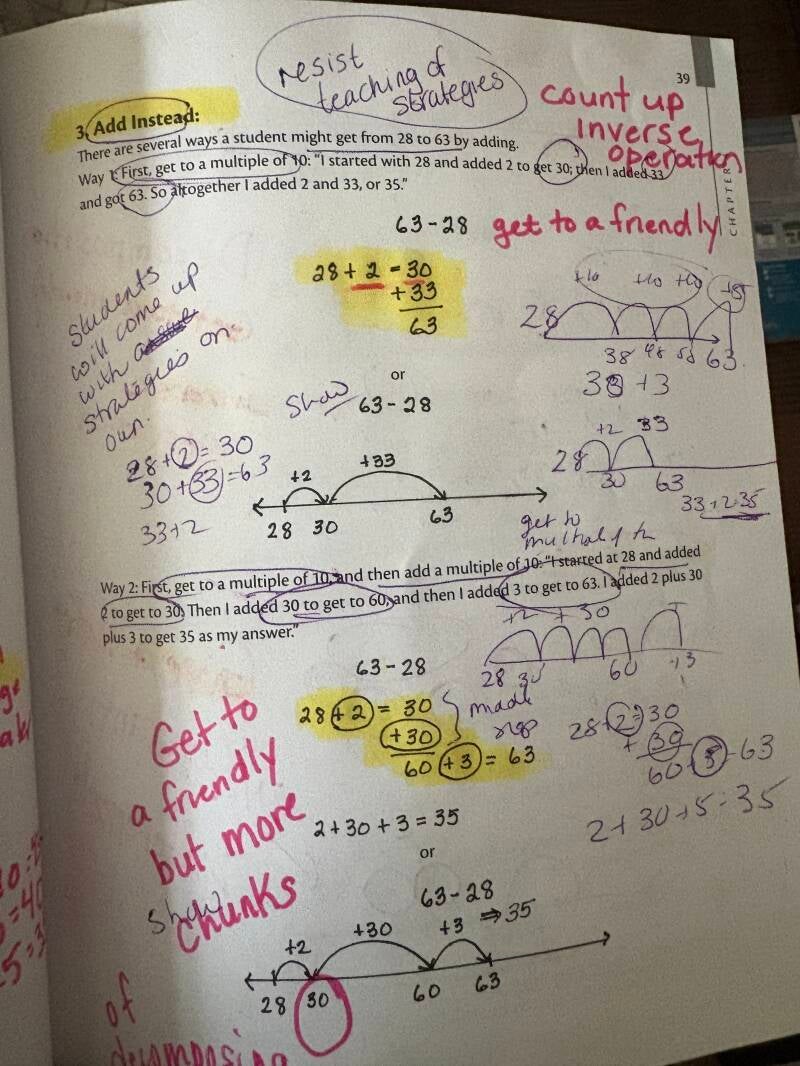 resist
teaching of
strategies
39
CHAPTER
count up
inverse
operation
3. Add Instead:
There are several ways a student might get from 28 to 63 by adding.
Way 1: First, get to a multiple of 10: "I started with 28 and added 2 to get 30; then I added 33
and got 63. So altogether I added 2 and 33, or 35."
63-28
get to a friendly
28 + 2 = 30
+33
63
students
will come up
with
strategies on
own.
+10 +10 +10 +5
28
38 48 58 63
33 +3
or
show
63-28
28+2=30
30+33=63
33+2
+2 +33
28 30 63
+2 33
28 30 63
33+2=35
get to
Way 2: First, get to a multiple of 10, and then add a multiple of 10: "I started at 28 and added
2 to get to 30. Then I added 30 to get to 60, and then I added 3 to get to 63. I added 2 plus 30
plus 3 to get 35 as my answer."
+2 + 30
28 30 60 +3
63-28
28 + 2 = 30
+30
60 + 3 = 63
made
28+2=30
+ 30
60+3=63
2+30+5=35
Get to
a friendly
but more
chunks
show
2+30+3=35
or
63-28
⇒35
+2 +30 +3
28 30 60 63
of
decomposing